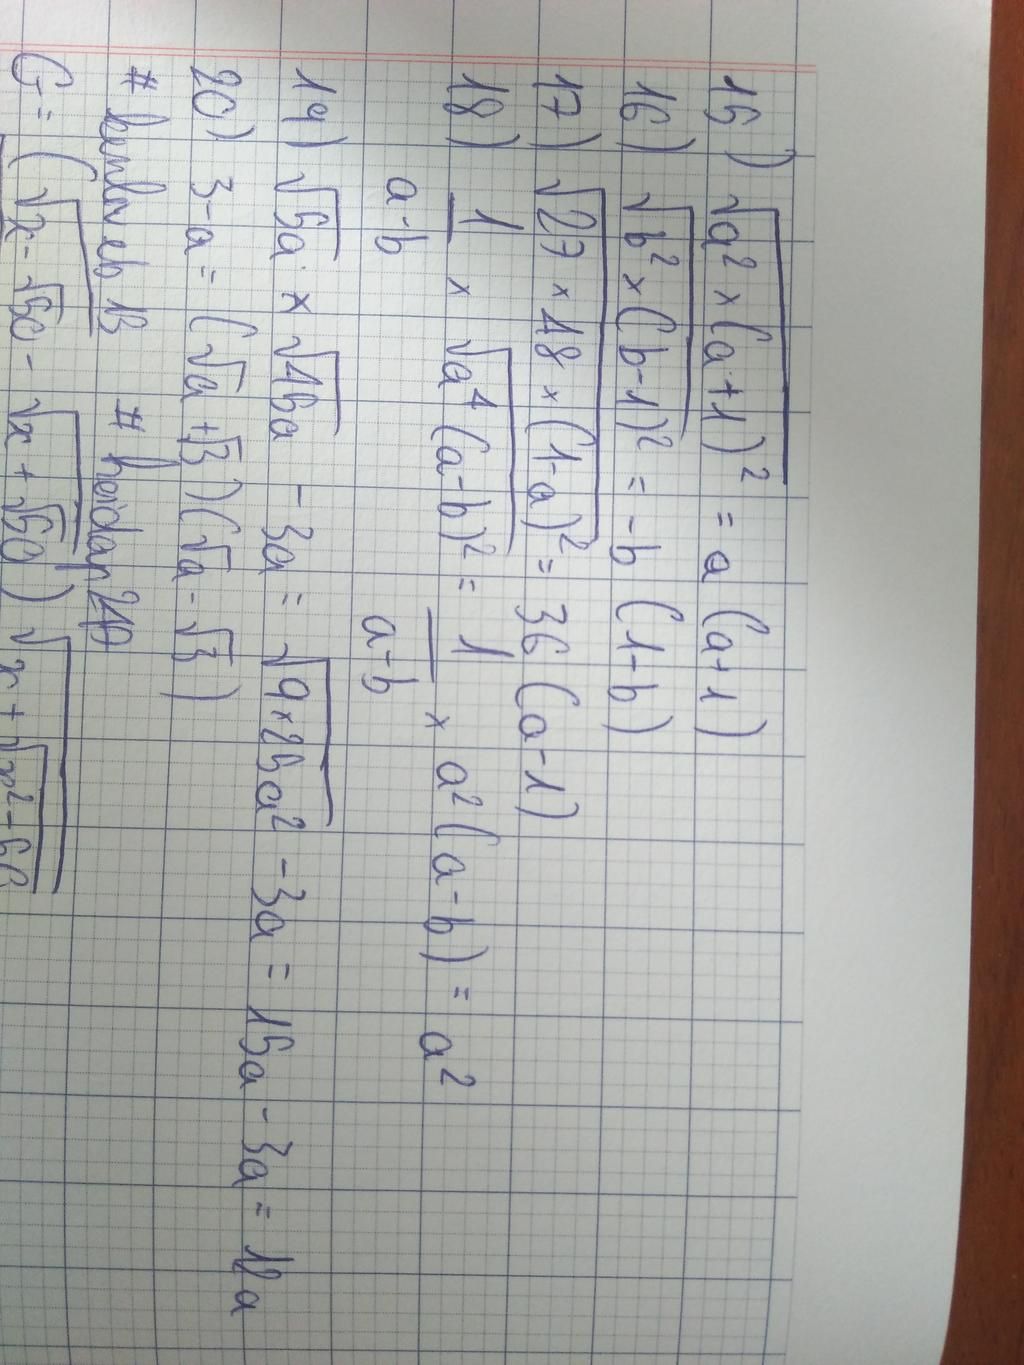 15) √a² × (a+1)² = a (a+1)
16) √b² × (b-1)² = -b (1-b)
17) √27 × 48 × (1-a)² = 36 (a-1)
18) 1/a-b × √a⁴ (a-b)² = 1/a-b × a² (a-b) = a²
19) √5a × √45a - 3a = √9×25a² - 3a = 15a - 3a = 12a
20) 3-a = (√a + √3) (√a - √3)
G = (√x - √50 - √x + √50) √x + √x² - 50